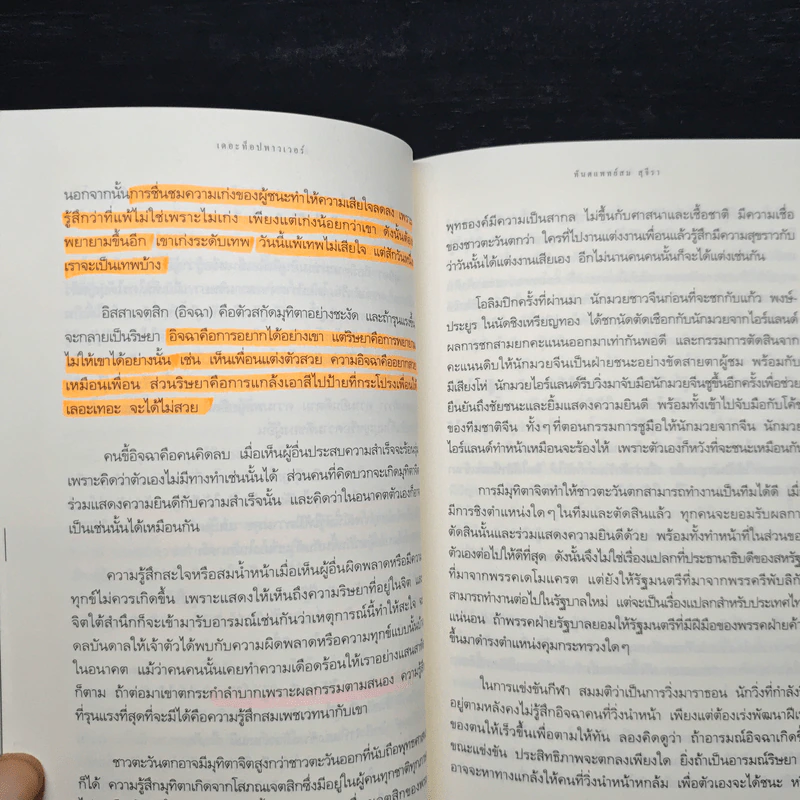 เดอะท็อปพาวเวอร์
นอกจากนั้นการชื่นชมความเก่งของผู้ชนะทำให้ความเสียใจลดลง เพราะ
รู้สึกว่าที่แพ้ไม่ใช่เพราะไม่เก่ง เพียงแต่เก่งน้อยกว่าเขา ดังนั้นต้อง
พยายามขึ้นอีก เขาเก่งระดับเทพ วันนี้แพ้เทพไม่เสียใจ แต่สักวันหนึ่ง
เราจะเป็นเทพบ้าง
อิสสาเจตสิก (อิจฉา) คือตัวสกัดมุทิตาอย่างชะงัด และถ้ารุนแรงขึ้น
จะกลายเป็นริษยา อิจฉาคือการอยากได้อย่างเขา แต่ริษยาคือการพยายาม
ไม่ให้เขาได้อย่างนั้น เช่น เห็นเพื่อนแต่งตัวสวย ความอิจฉาคืออยากสวย
เหมือนเพื่อน ส่วนริษยาคือการแกล้งเอาสีไปป้ายที่กระโปรงเพื่อนให้
เลอะเทอะ จะได้ไม่สวย
คนขี้อิจฉาคือคนคิดลบ เมื่อเห็นผู้อื่นประสบความสำเร็จจะร้อนรุ่ม
เพราะคิดว่าตัวเองไม่มีทางทำเช่นนั้นได้ ส่วนคนที่คิดบวกจะเกิดมุทิตาจิต
ร่วมแสดงความยินดีกับความสำเร็จนั้น และคิดว่าในอนาคตตัวเองก็อาจ
เป็นเช่นนั้นได้เหมือนกัน
ความรู้สึกสะใจหรือสมน้ำหน้าเมื่อเห็นผู้อื่นผิดพลาดหรือมีความ
ทุกข์ไม่ควรเกิดขึ้น เพราะแสดงให้เห็นถึงความริษยาที่อยู่ในจิต
จิตใต้สำนึกก็จะเข้ามารับอารมณ์เช่นกันว่าเหตุการณ์นี้ทำให้สะใจ
ดลบันดาลให้เจ้าตัวได้พบกับความผิดพลาดหรือความทุกข์แบบนั้น
ในอนาคต แม้ว่าคนคนนั้นเคยทำความเดือดร้อนให้เราอย่างแสนสาหัส
ก็ตาม ถ้าต่อมาเขาตกระกำลำบากเพราะผลกรรมตามสนอง ความรู้สึก
ที่รุนแรงที่สุดที่จะมีได้คือความรู้สึกสมเพชเวทนากับเขา
ชาวตะวันตกอาจมีมุทิตาจิตสูงกว่าชาวตะวันออกที่นับถือพุทธศาสนา
ก็ได้ ความรู้สึกมุทิตาเกิดจากโสภณเจตสิกซึ่งมีอยู่ในผู้คนทุกชาติทุกภาษา
ทันตแพทย์สม สุจีรา
พุทธองค์มีความเป็นสากล ไม่ขึ้นกับศาสนาและเชื้อชาติ มีความเชื่อ
ของชาวตะวันตกว่า ใครที่ไปงานแต่งงานเพื่อนแล้วรู้สึกมีความสุขราวกับ
ว่าวันนั้นได้แต่งงานเสียเอง อีกไม่นานคนคนนั้นก็จะได้แต่งเช่นกัน
โอลิมปิกครั้งที่ผ่านมา นักมวยชาวจีนก่อนที่จะชกกับแก้ว พงษ์-
ประยูร ในนัดชิงเหรียญทอง ได้ชกนัดตัดเชือกกับนักมวยจากไอร์แลนด์
ผลการชกสามยกคะแนนออกมาเท่ากันพอดี และกรรมการตัดสินจาก
คะแนนดิบให้นักมวยจีนเป็นฝ่ายชนะอย่างขัดสายตาผู้ชม พร้อมกับ
มีเสียงโห่ นักมวยไอร์แลนด์รีบวิ่งมาจับมือนักมวยจีนชูขึ้นอีกครั้งเพื่อช่วย
ยืนยันถึงชัยชนะและยิ้มแสดงความยินดี พร้อมทั้งเข้าไปจับมือกับโค้ช
ของทีมชาติจีน ทั้งๆ ที่ตอนกรรมการชูมือให้นักมวยจากจีน นักมวย
ไอร์แลนด์ทำหน้าเหมือนจะร้องไห้ เพราะตัวเองก็หวังที่จะชนะเหมือนกัน
การมีมุทิตาจิตทำให้ชาวตะวันตกสามารถทำงานเป็นทีมได้ดี เมื่อ
มีการชิงตำแหน่งใดๆ ในทีมและตัดสินแล้ว ทุกคนจะยอมรับผลการ
ตัดสินนั้นและร่วมแสดงความยินดีด้วย พร้อมทั้งทำหน้าที่ในส่วนของ
ตัวเองต่อไปให้ดีที่สุด ดังนั้นจึงไม่ใช่เรื่องแปลกที่ประธานาธิบดีของสหรัฐ
ที่มาจากพรรคเดโมแครต แต่ยังให้รัฐมนตรีที่มาจากพรรครีพับลิกัน
สามารถทำงานต่อไปในรัฐบาลใหม่ แต่จะเป็นเรื่องแปลกสำหรับประเทศไทย
แน่นอน ถ้าพรรคฝ่ายรัฐบาลยอมให้รัฐมนตรีที่มีฝีมือของพรรคฝ่ายค้าน
ขึ้นมาดำรงตำแหน่งคุมกระทรวงใดๆ
ในการแข่งขันกีฬา สมมติว่าเป็นการวิ่งมาราธอน นักวิ่งที่กำลังวิ่ง
อยู่ตามหลังคงไม่รู้สึกอิจฉาคนที่วิ่งนำหน้า เพียงแต่ต้องเร่งพัฒนาฝีเท้า
ของตนให้เร็วขึ้นเพื่อตามให้ทัน ลองคิดดูว่า ถ้าอารมณ์อิจฉาเกิดขึ้น
ขณะแข่งขัน ประสิทธิภาพจะตกลงเพียงใด ยิ่งถ้าเป็นอารมณ์ริษยา
อาจจะหาทางแกล้งให้คนที่วิ่งนำหน้าหกล้ม เพื่อตัวเองจะได้ชนะ